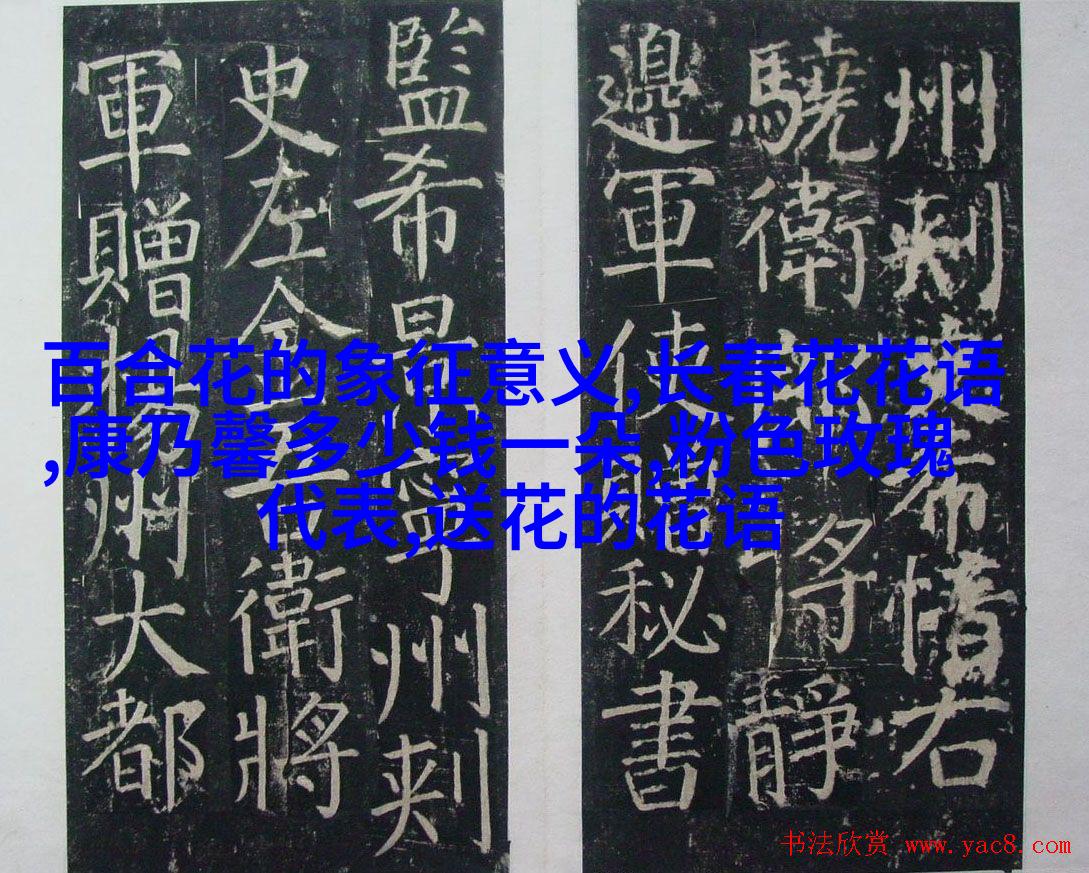 州刺史希愔右
驍衛郎將靜
邊軍使贈秘書
監希景寧州刺
史左金吾衛將
軍贈揚州大都
百合花的象征意义,长春花花语
,康乃馨多少钱一朵,粉色玫瑰
代表,送花的花语
书法欣赏 www.yac8.com